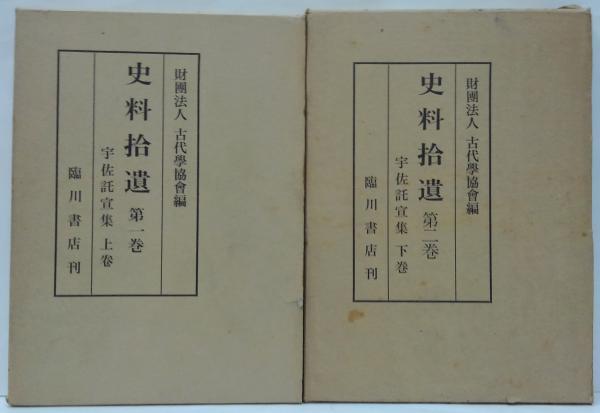 財團法人 古代學協會編
史料拾遺 第一巻
宇佐託宣集 上巻
臨川書店刊
財團法人 古代學協會編
史料拾遺 第二巻
宇佐託宣集 下巻
臨川書店刊